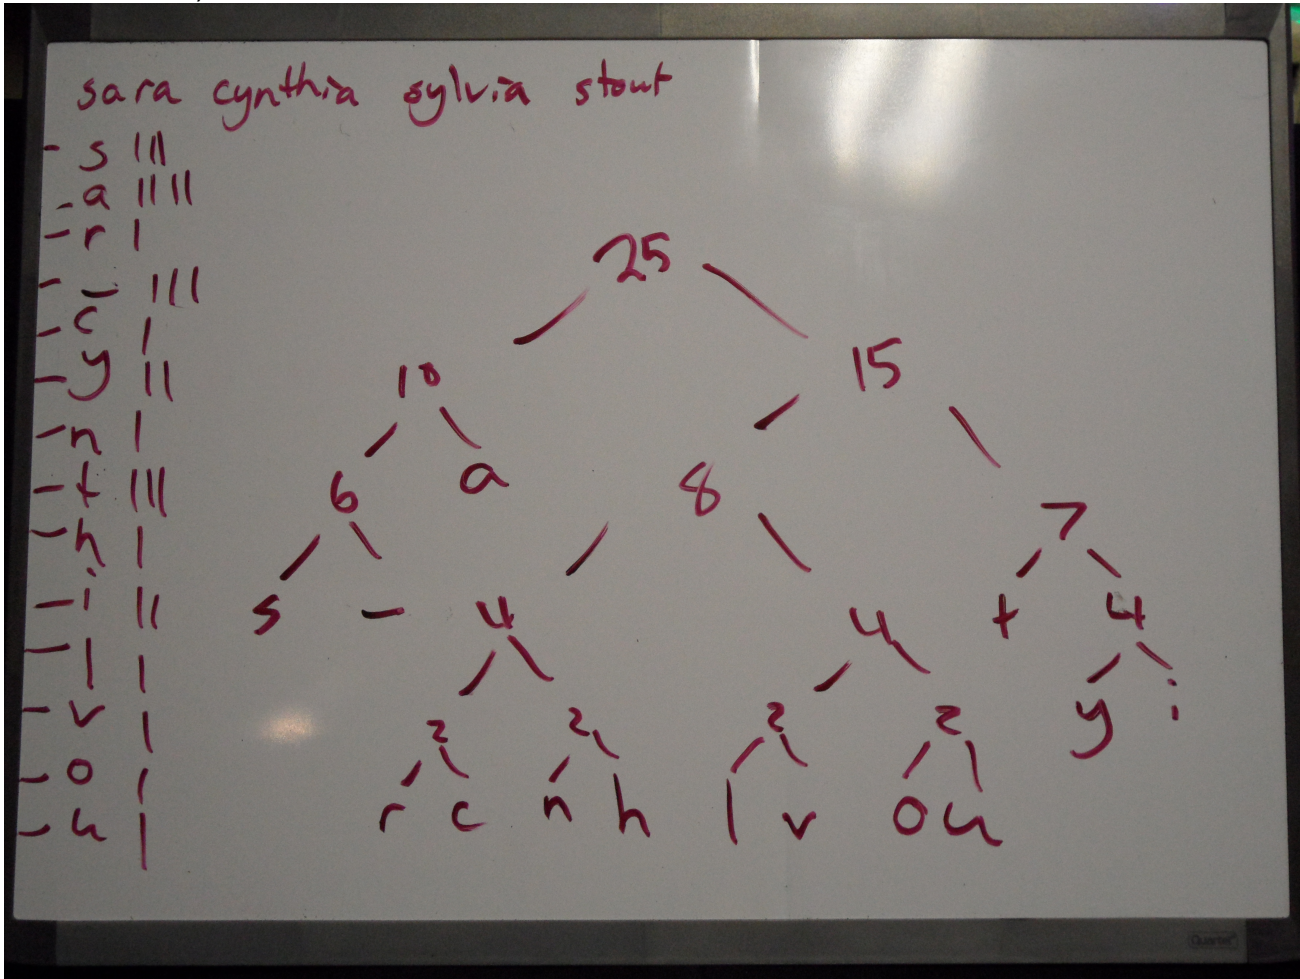 sara cynthia sylvia stout
- s |||
- a ||||
- r |
- _ |||
- c |
- y ||
- n |
- t |||
- h |
- i ||
- l |
- v |
- o |
- u |
25
10 15
6 a 8 7
s - 4 4 t 4
2 2 2 2 y i
r c n h l v o u
Quartet